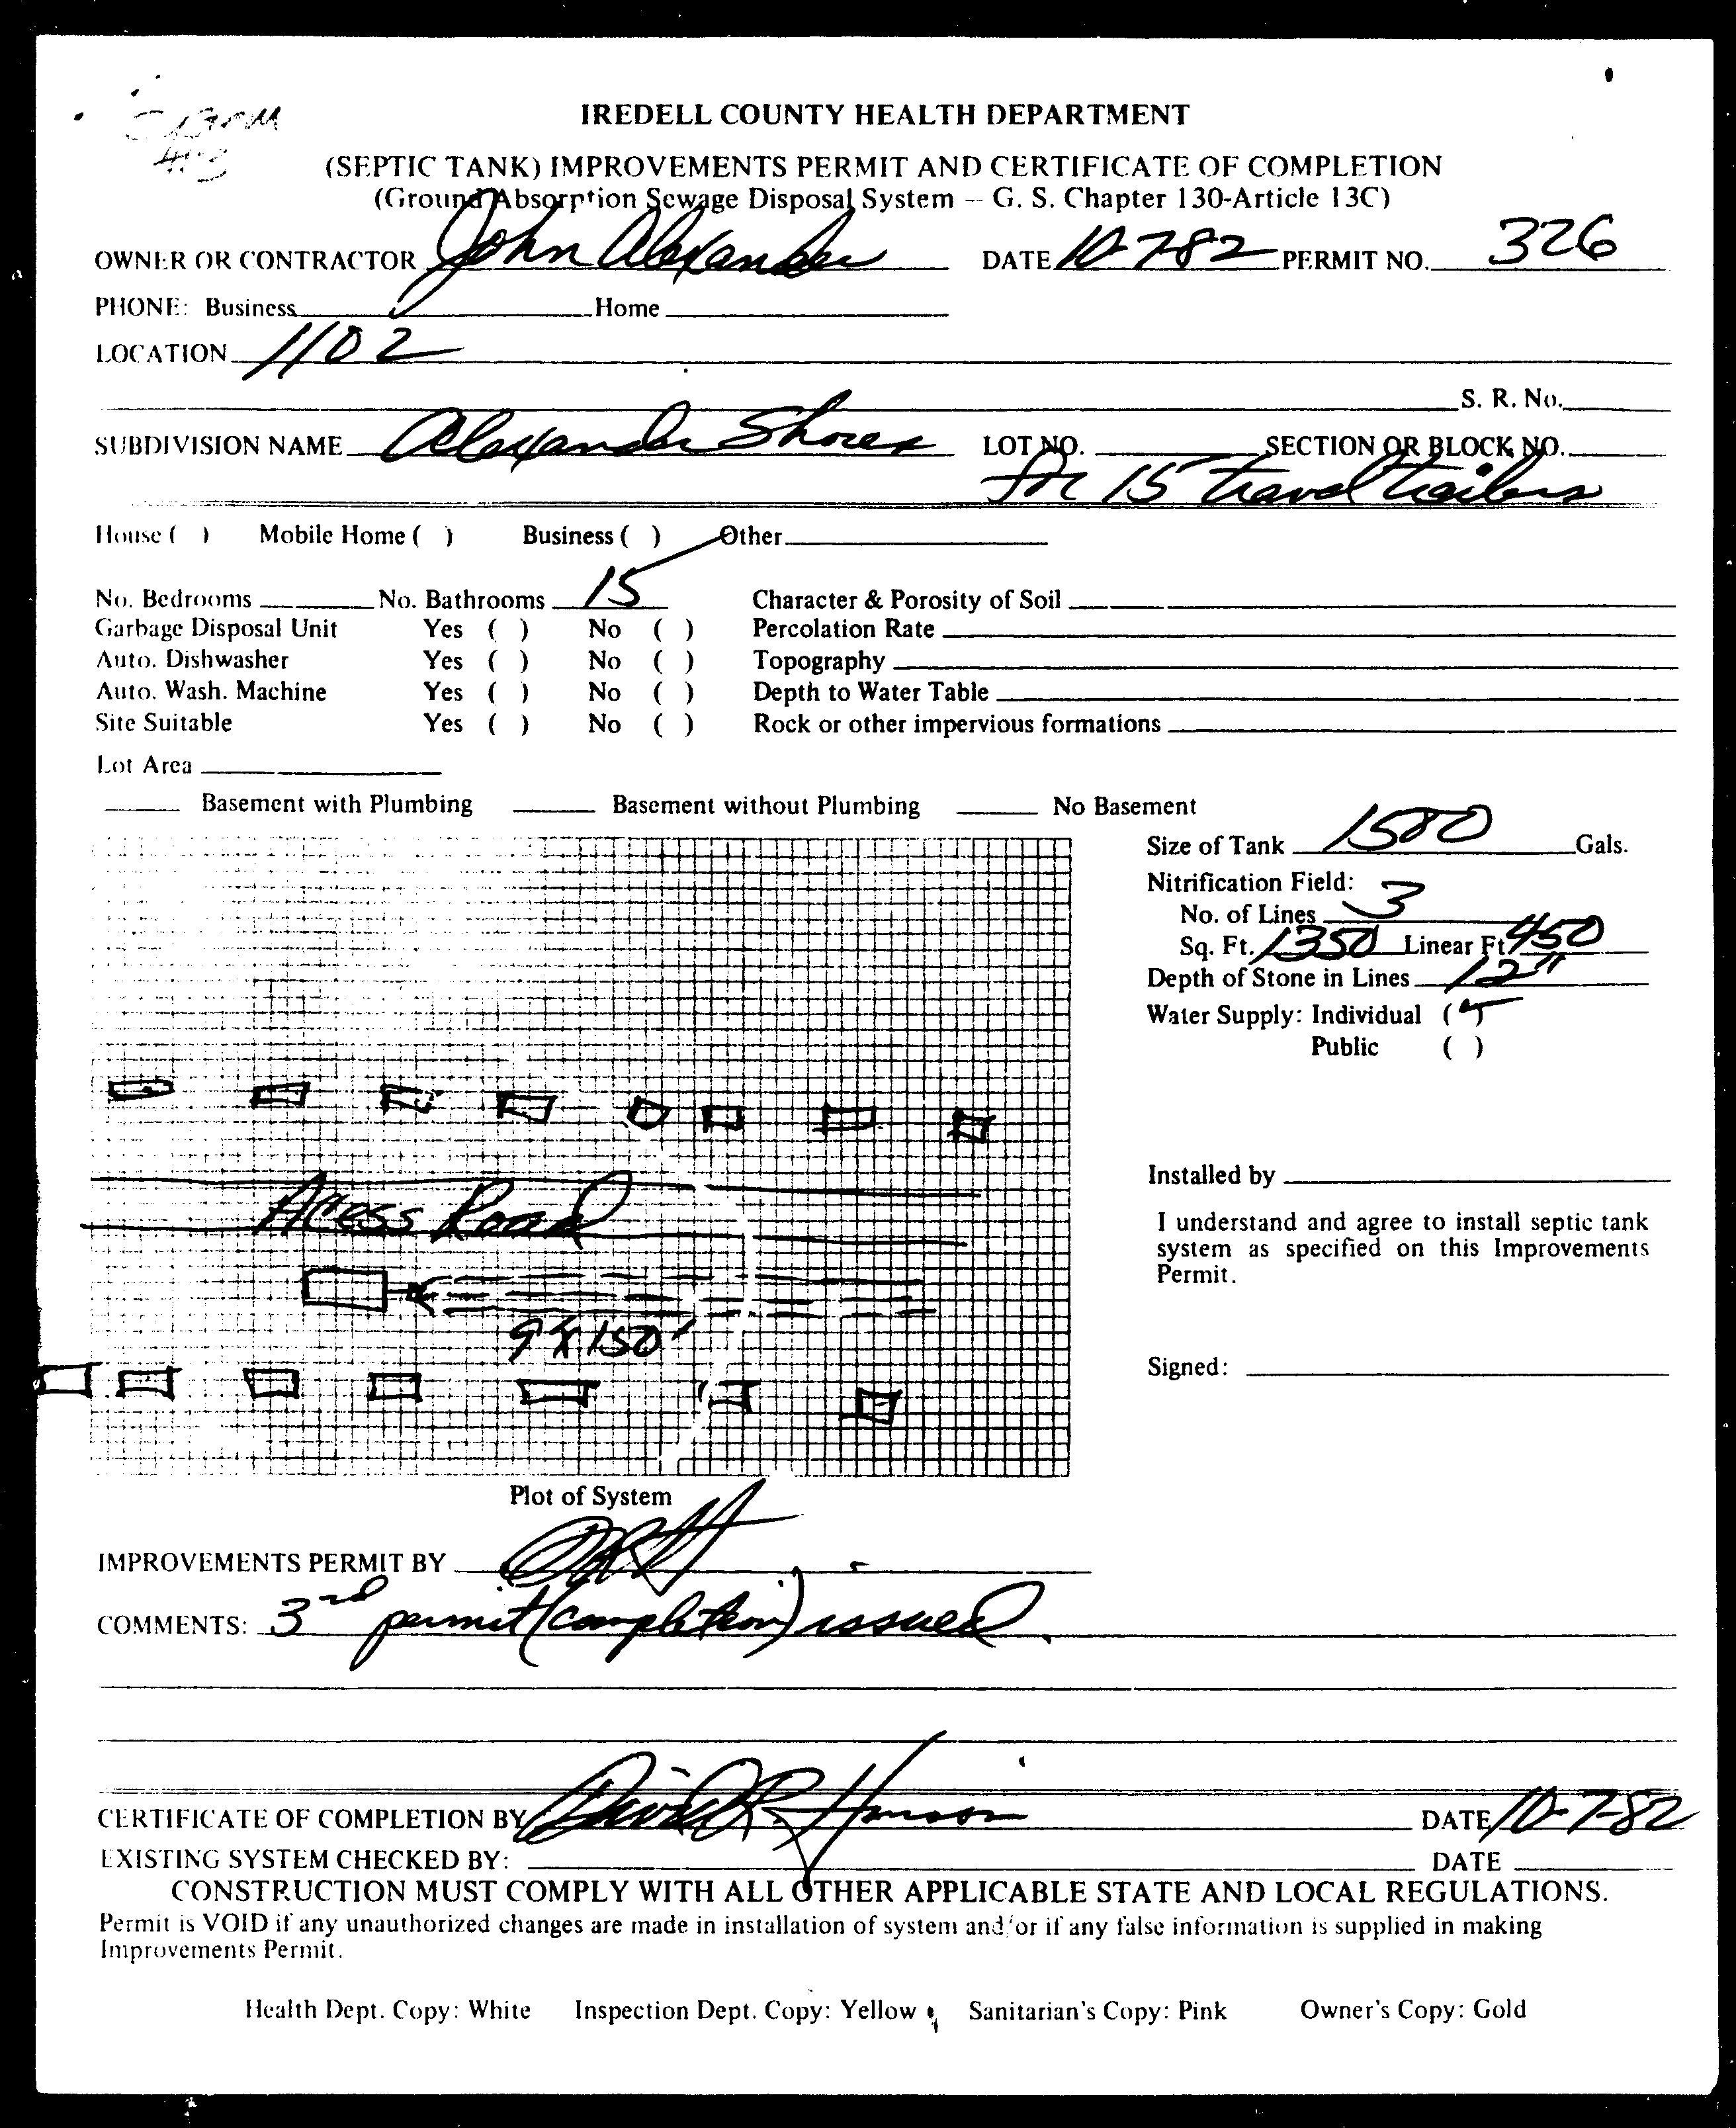 IREDELL COUNTY HEALTH DEPARTMENT
(SEPTIC TANK) IMPROVEMENTS PERMIT AND CERTIFICATE OF COMPLETION
(Ground Absorption Sewage Disposal System -- G. S. Chapter 130-Article 13C)
OWNER OR CONTRACTOR John Alexander DATE 10-7-82 PERMIT NO. 326
PHONE: Business Home
LOCATION 1102
S. R. No.
SUBDIVISION NAME Alexander Shores LOT NO. SECTION OR BLOCK NO.
for 15 travel trailers
House ( ) Mobile Home ( ) Business ( ) Other
No. Bedrooms No. Bathrooms 15 Character & Porosity of Soil
Garbage Disposal Unit Yes ( ) No ( ) Percolation Rate
Auto. Dishwasher Yes ( ) No ( ) Topography
Auto. Wash. Machine Yes ( ) No ( ) Depth to Water Table
Site Suitable Yes ( ) No ( ) Rock or other impervious formations
Lot Area
Basement with Plumbing Basement without Plumbing No Basement
Size of Tank 1500 Gals.
Nitrification Field:
No. of Lines 3
Sq. Ft. 1350 Linear Ft 450
Depth of Stone in Lines 12"
Water Supply: Individual (✓)
Public ( )
Acess Road
9 x 150'
Installed by
I understand and agree to install septic tank
system as specified on this Improvements
Permit.
Signed:
Plot of System
IMPROVEMENTS PERMIT BY DRH
COMMENTS: 3rd permit (completion) issued.
CERTIFICATE OF COMPLETION BY David R. DATE 10-7-82
EXISTING SYSTEM CHECKED BY: DATE
CONSTRUCTION MUST COMPLY WITH ALL OTHER APPLICABLE STATE AND LOCAL REGULATIONS.
Permit is VOID if any unauthorized changes are made in installation of system and/or if any false information is supplied in making
Improvements Permit.
Health Dept. Copy: White Inspection Dept. Copy: Yellow Sanitarian's Copy: Pink Owner's Copy: Gold